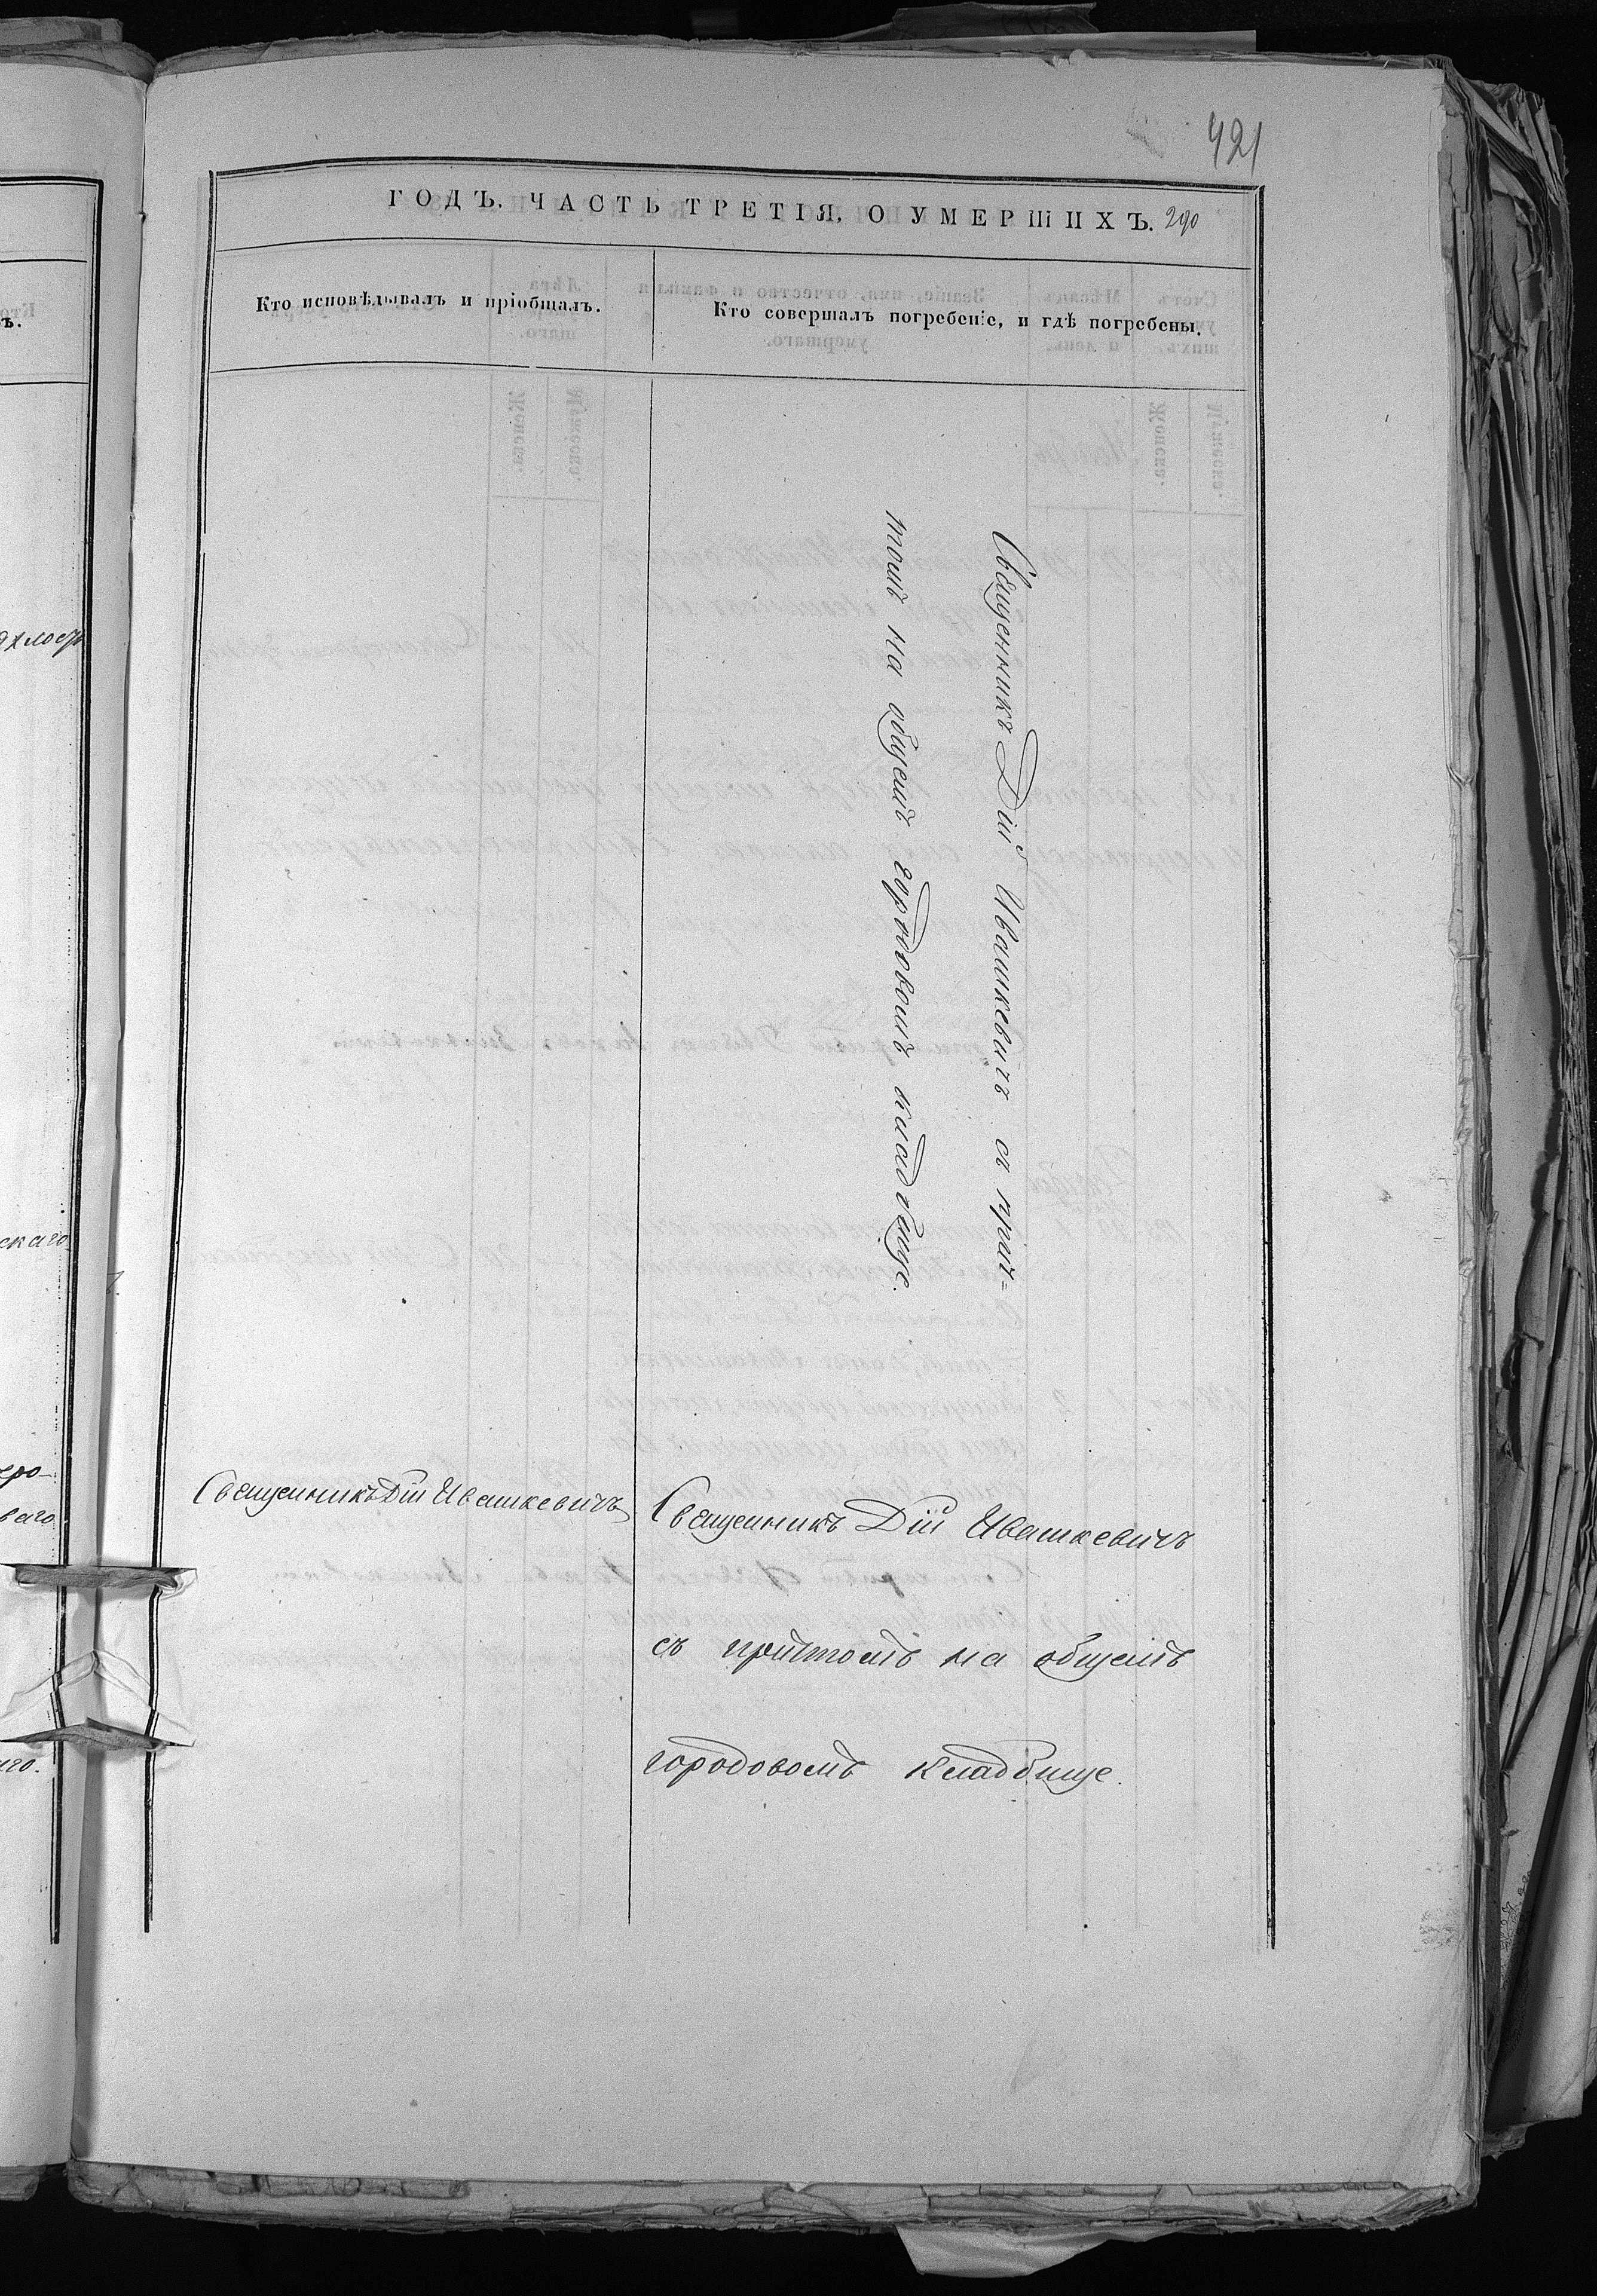 421
ГОДЪ. ЧАСТЬ ТРЕТІЯ, О УМЕРШИХЪ. 290
Кто исповѣдывалъ и пріобщалъ.
Кто совершалъ погребеніе, и гдѣ погребены.
Священникъ Дій Ивашкевичъ съ прич=
томъ на общемъ городовомъ кладбище.
Священникъ Дій Ивашкевичъ
Священникъ Дій Ивашкевичъ
съ притомъ на общемъ
городовомъ кладбище.
ъ.
скаго
ро-
ваго
го.